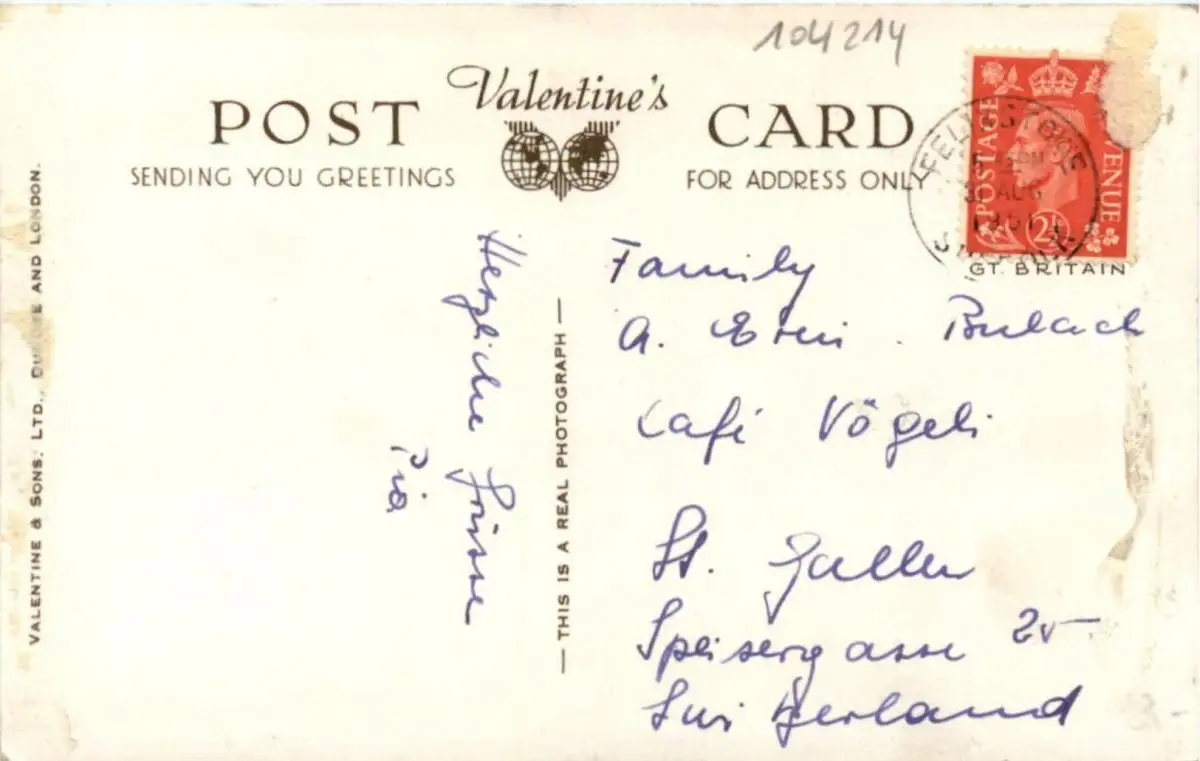 104214
Valentine's
POST CARD
SENDING YOU GREETINGS
FOR ADDRESS ONLY
POSTAGE REVENUE
2½
FELIXSTOWE
31 AUG
1951
SUFFOLK
GT. BRITAIN
VALENTINE & SONS, LTD., DUNDEE AND LONDON.
Herzliche Grüsse
Pia
— THIS IS A REAL PHOTOGRAPH —
Family
A. Bulach
Café Vögeli
St. Gallen
Speisergasse 25
Switzerland